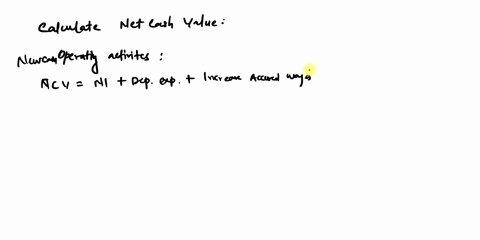 Calculate Net Cash Value:
Operating activites:
NCV = NI + Dep. exp. + Increase Accured wages